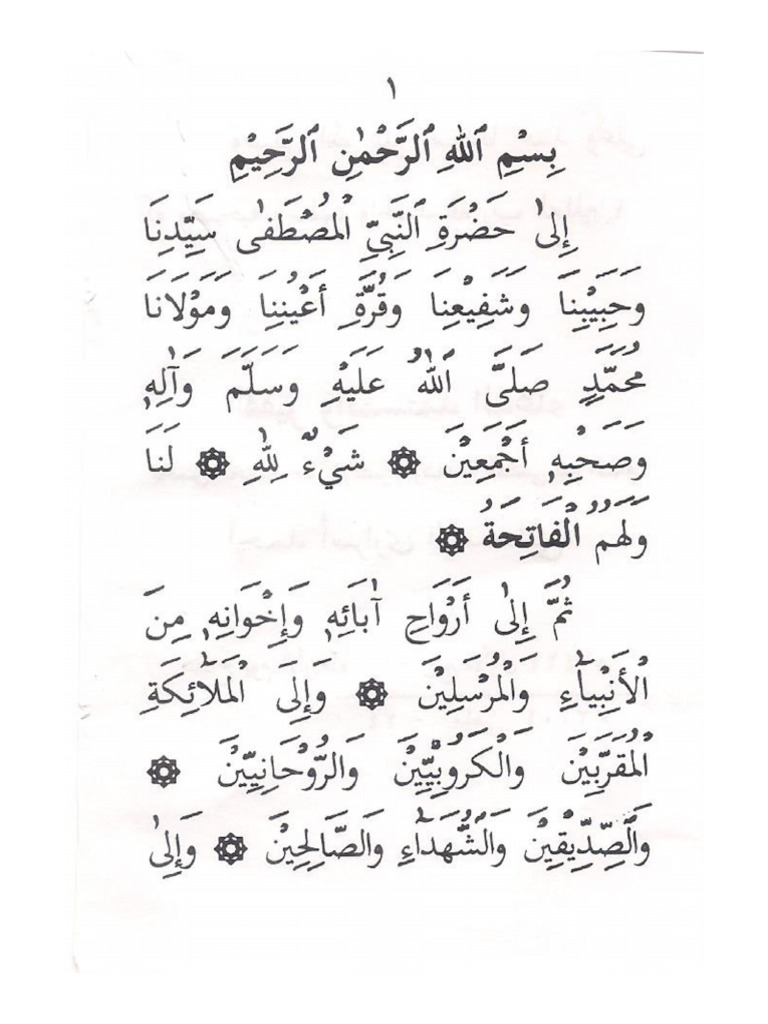 ١
بِسْمِ ٱللهِ ٱلرَّحْمٰنِ ٱلرَّحِيْمِ
إِلىٰ حَضْرَةِ ٱلنَّبِيِّ الْمُصْطَفىٰ سَيِّدِنَا
وَحَبِيْبِنَا وَشَفِيْعِنَا وَقُرَّةِ أَعْيُنِنَا وَمَوْلَانَا
مُحَمَّدٍ صَلَّى ٱللهُ عَلَيْهِ وَسَلَّمَ وَآلِهٖ
وَصَحْبِهٖ أَجْمَعِيْنَ ۞ شَيْءٌ لِلّٰهِ ۞ لَنَا
وَلَهُمُ الْفَاتِحَةُ ۞
ثُمَّ إِلىٰ أَرْوَاحِ آبَائِهٖ وَإِخْوَانِهٖ مِنَ
الْأَنْبِيَآءِ وَالْمُرْسَلِيْنَ ۞ وَإِلَى الْمَلَآئِكَةِ
الْمُقَرَّبِيْنَ وَالْكَرُوْبِيِّيْنَ وَالرُّوْحَانِيِّيْنَ ۞
وَٱلصِّدِّيْقِيْنَ وَٱلشُّهَدَآءِ وَٱلصَّالِحِيْنَ ۞ وَإِلىٰ